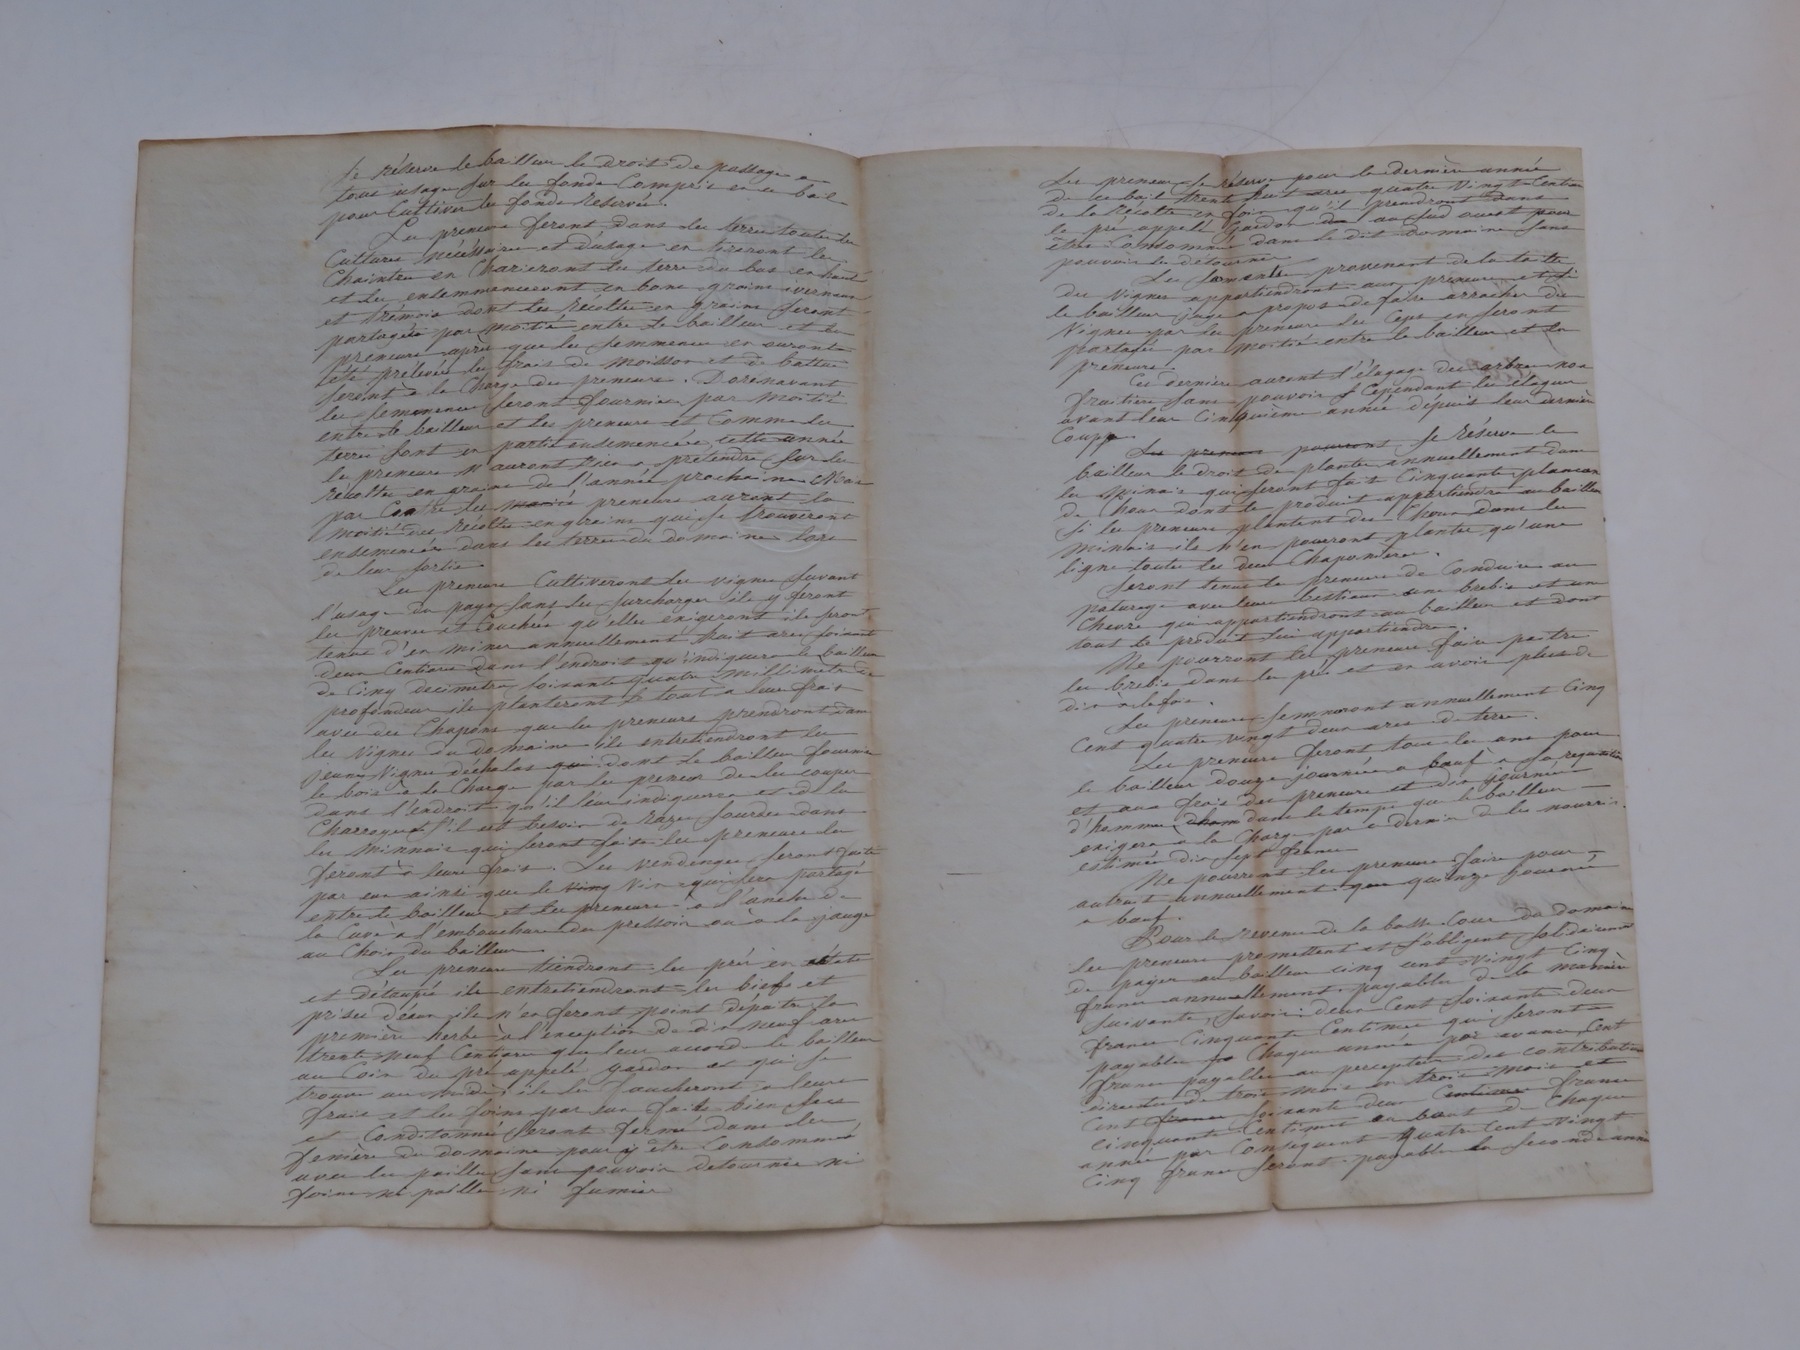 Se réserve le bailleur le droit de passage a
tous usage sur les fonds compris en ce bail
pour cultiver les fonds réservés.
Les preneurs feront dans les terres toutes les
Cultures nécéssaires et d'usage en tireront les
Chaintres en Charieront les terres du bas en haut
et les ensemmenceront en bons grains ivernaux
et trémois dont les récoltes en grains seront
partagées par moitié entre le bailleur et les
preneurs après que les semmences en auront
été prelevées les frais de moisson et de battue
seront a la Charge des preneurs. Dorénavant
les semmences seront fournies par moitié
entre le bailleur et les preneurs et comme les
terres sont en partie ensemencées, cette année
les preneurs n'auront rien a prétendre sur les
récoltes en grains de l'année prochaine Mais
par Contre les preneurs auront la
moitié des récoltes en grains qui se trouveront
ensemencées dans les terres du domaine lors
de leur sortie
Les preneurs Cultiveront les vignes suivant
l'usage du pays sans les surcharger ils y feront
les preuves et Couchées qu'elles exigeront ils seront
tenus d'en miner annuellement huit ares soixante
deux Centiares dans l'endroit qu'indiquera le bailleur
de Cinq decimetres soixante quatre millimetres de
profondeur ils planteront le tout a leur frais
avec des Chapons que les preneurs prendront dans
les Vignes du domaine ils entretiendront les
jeunes Vignes déchalas qui dont le bailleur fournira
le bois a la Charge par les preneurs de les couper
dans l'endroit qu'il leur indiquerra et de les
Charroyer s'il est besoin de razes sourdes dans
les Minnais qui seront faits les preneurs les
feront a leurs frais. Les Vendanges seront faites
par eux ainsi que le Vin qui sera partagé
entre le bailleur et les preneurs a l'anche de
la Cuve a l'embouchure du pressoir ou a la jauge
au Choix du bailleur
Les preneurs tiendront les prés en état
et détaupés ils entretiendront les biefs et
prises d'eau ils n'en feront point dépaitre la
première herbe a l'exception de dix neuf ares
trente neuf Centiares que leur accorde le bailleur
au Coin du pré appelé gardon et qui se
trouve au midi, ils les faucheront a leurs
frais et les foins par eux faits bien secs
et Conditonnés seront fermés dans les
fenières du domaine pour y être Consommés
avec les pailles sans pouvoir detourner ni
foins ni pailles ni fumier
Les preneurs se réserve pour la dernière année
de ce bail trente huit ares quatre Vingt Centiares
de la récolte en foin qu'il prendront dans
le pré appelé Gardon au sud ouest pour
être Consommés dans le dit domaine sans
pouvoir les détourner
Les Sarments provenant de la taille
des Vignes appartiendront aux preneurs et si
le bailleur juge a propos de faire arracher des
Vignes par les preneurs les Ceps en seront
partagés par Moitié entre le bailleur et les
preneurs.
Ces derniers auront l'élagage des arbres non
fruitiers sans pouvoir Cependant les élaguer
avant leur Cinquième année dépuis leur dernière
Coupe
Les preneurs pourront Se réserve le
bailleur le droit de planter annuellement dans
les Minais qui seront fait Cinquante plancons
de Choux dont le produit appartiendra au bailleur
Si les preneurs plantent des Choux dans les
Minais ils n'en pourront planter qu'une
ligne toutes les deux Chaponières.
Seront tenus les preneurs de Conduire au
paturage avec leurs bestiaux une brebis et une
Chevre qui appartiendront au bailleur et dont
tout le produit lui appartiendra.
Ne pourront les preneurs faire paitre
les brebis dans les prés et en avoir plus de
dix a la fois.
Les preneurs semmeront annuellement Cinq
Cent quatre vingt deux ares de terre.
Les preneurs feront tous les ans pour
le bailleur douze journées a bœuf a sa requisition
et aux frais des preneurs et dix journées
d'hommes dans le temps que le bailleur
exigera a la Charge par ce dernier de les nourrir
estimées dix sept francs
Ne pourront les preneurs faire pour
autruit annuellement que quinze journées
a bœuf.
Pour le revenu de la basse Cour du domaine
les preneurs promettent et s'obligent solidairement
de payer au bailleur cinq cent vingt Cinq
francs annuellement payables de la manière
suivante, Savoir: deux Cent soixante deux
francs Cinquante Centimes qui seront
payables Chaque année par avance, Cent
francs payables au percepteur des contributions
directes de trois mois en trois mois et
Cent soixante deux Centimes francs
cinquante Centimes au bout de Chaque
année par Conséquent quatre Cent Vingt
Cinq francs seront payables la seconde année